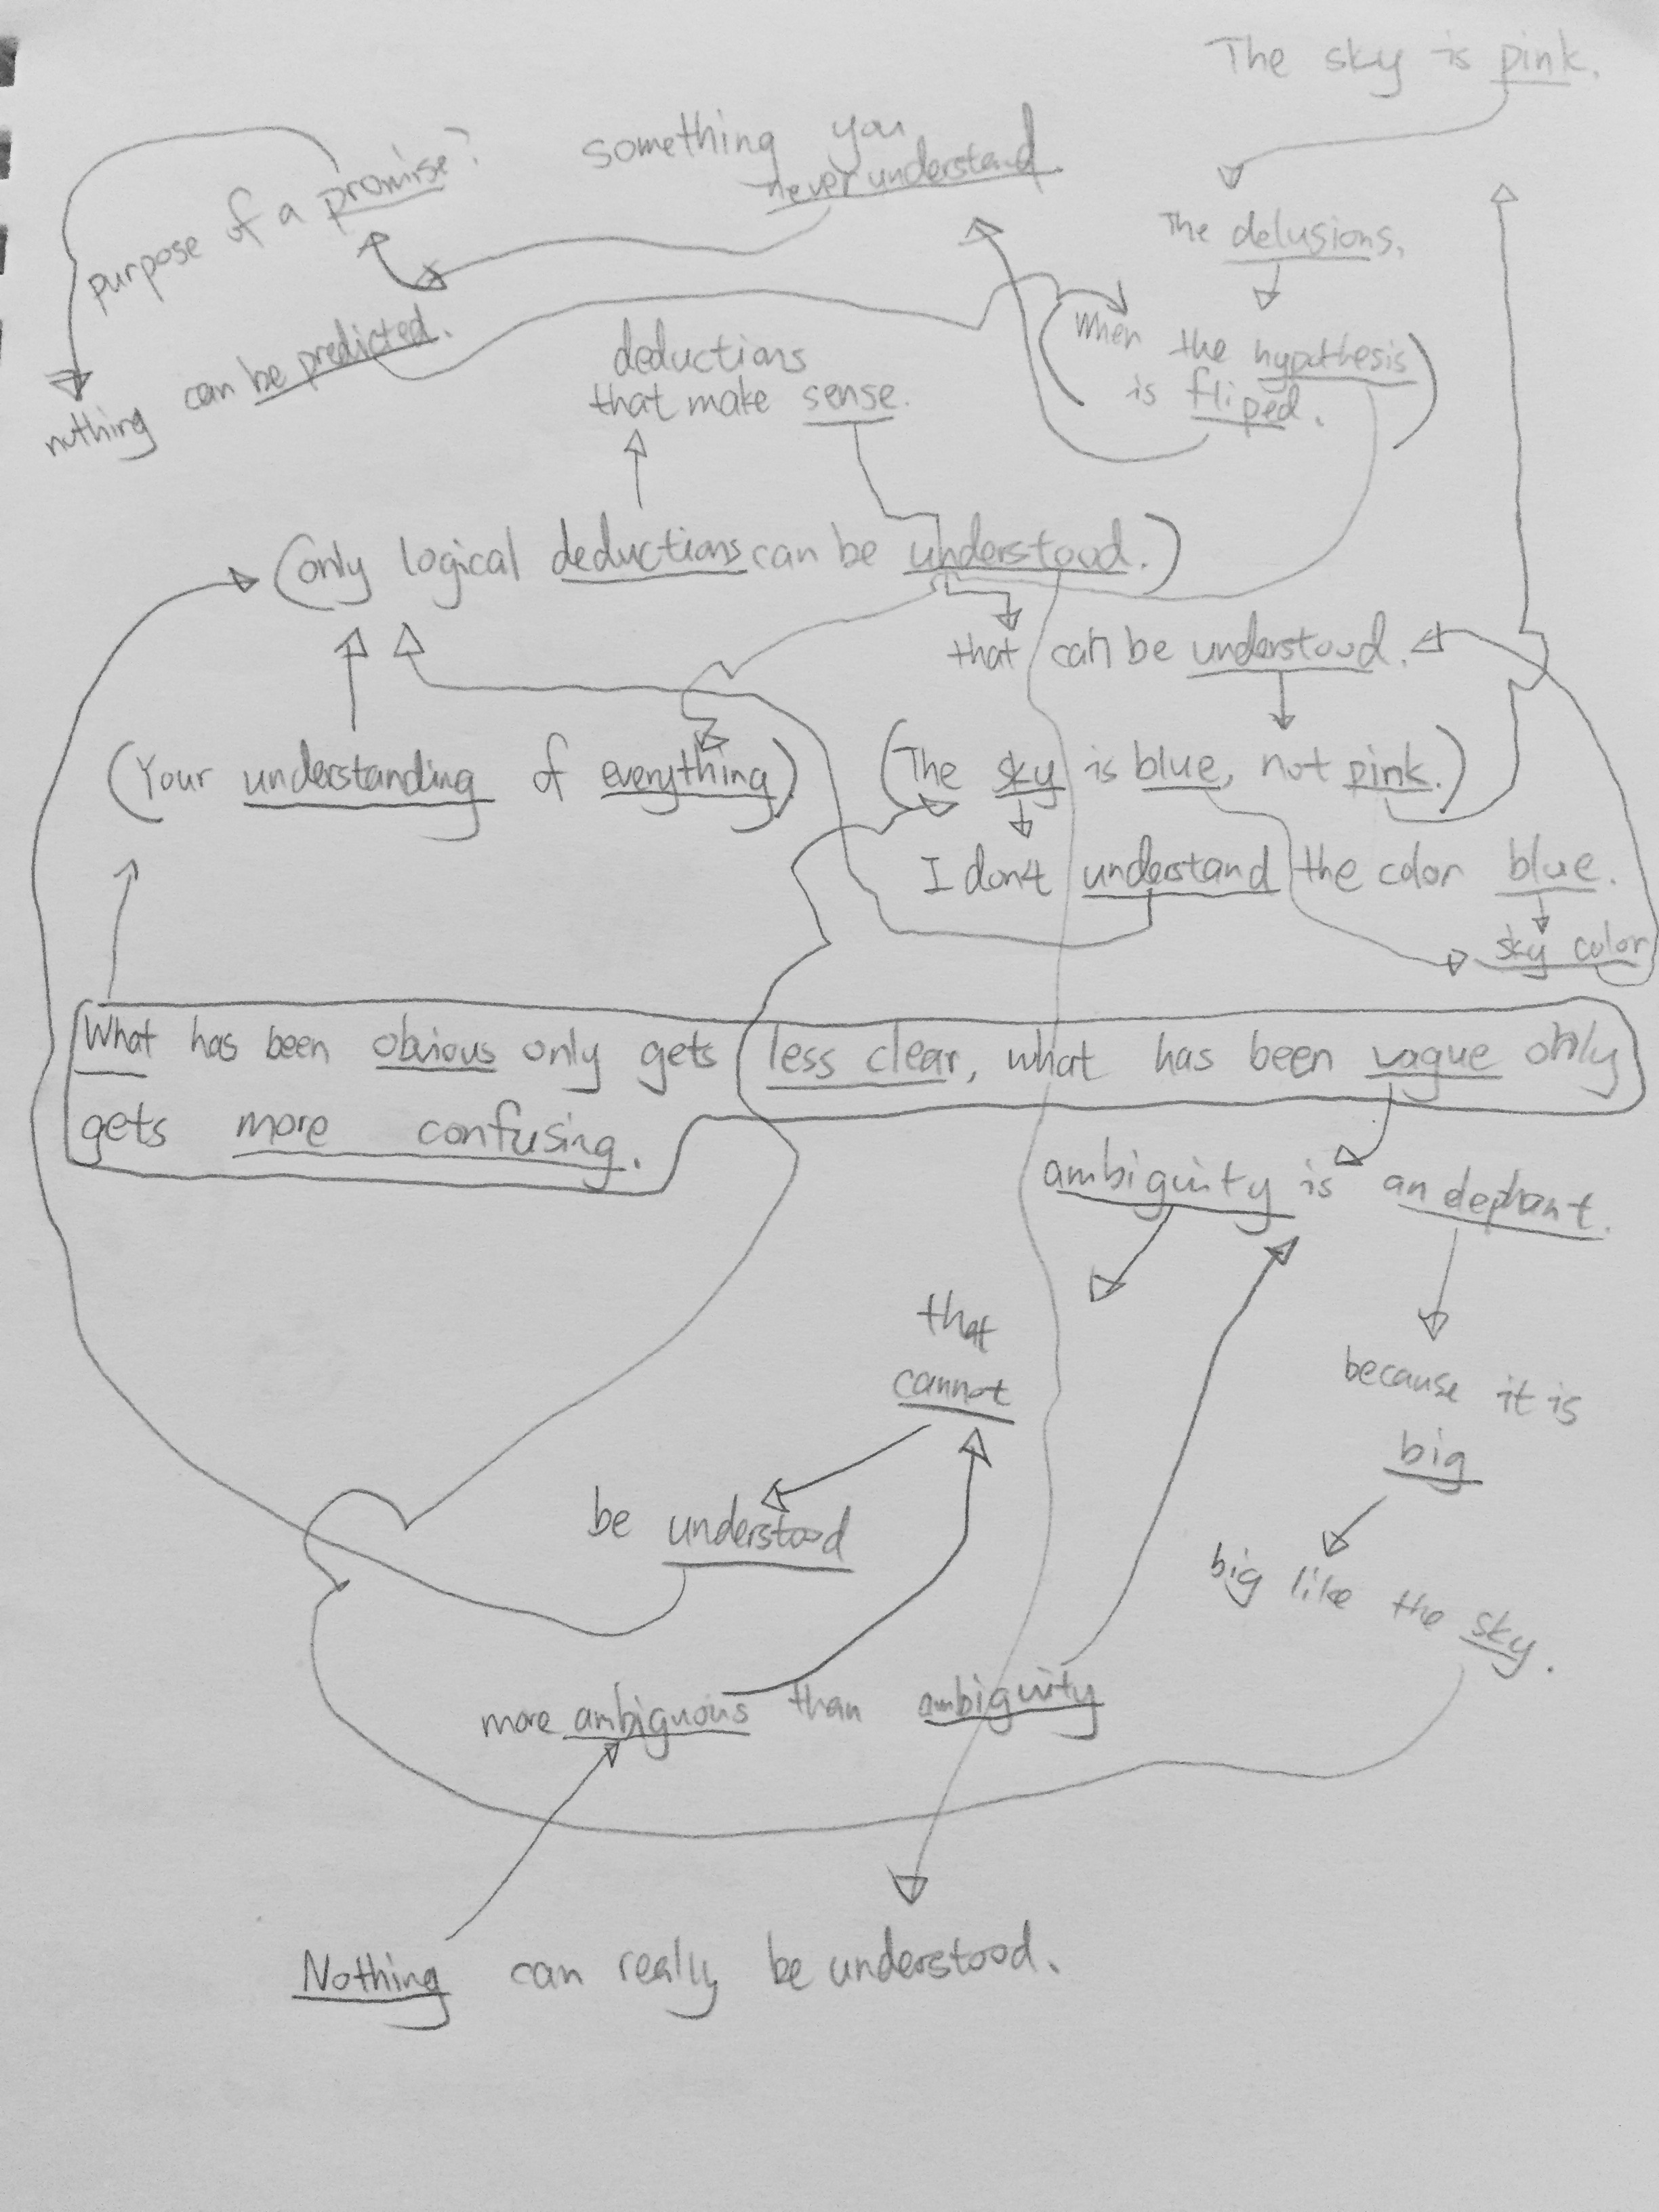 The sky is pink.
something you
never understand
purpose of a promise?
The delusions.
nothing can be predicted.
(When the hypothesis
is fliped.)
deductions
that make sense.
(only logical deductions can be understood.)
that can be understood.
(Your understanding of everything)
(The sky is blue, not pink.)
I don't understand the color blue.
sky color
What has been obvious only gets less clear, what has been vague only
gets more confusing.
ambiguity is an elephant.
that
cannot
because it is
big
be understood
big like the sky.
more ambiguous than ambiguity
Nothing can really be understood.